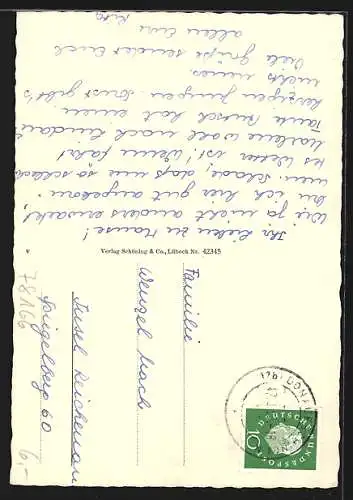 Ihr Lieben zu Hause!
Wie ja nicht anders erwartet,
bin ich hier gut angekom-
men. Schade, dass nur so schlech-
tes Wetter ist! Wenn fährt
Marlene wohl nach Lindau?
Tante hat einen
herzigen Jungen. Sonst gibt's
nichts neues.
Viele Grüße sendet Euch
allen Eure
Rita
v
Verlag Schöning & Co., Lübeck Nr. 42345
Familie
Wenzel Mach
Insel Reichenau
Spiegelberg 60
78166
6,-
(17b) DONAU
DEUTSCHE BUNDESPOST
10